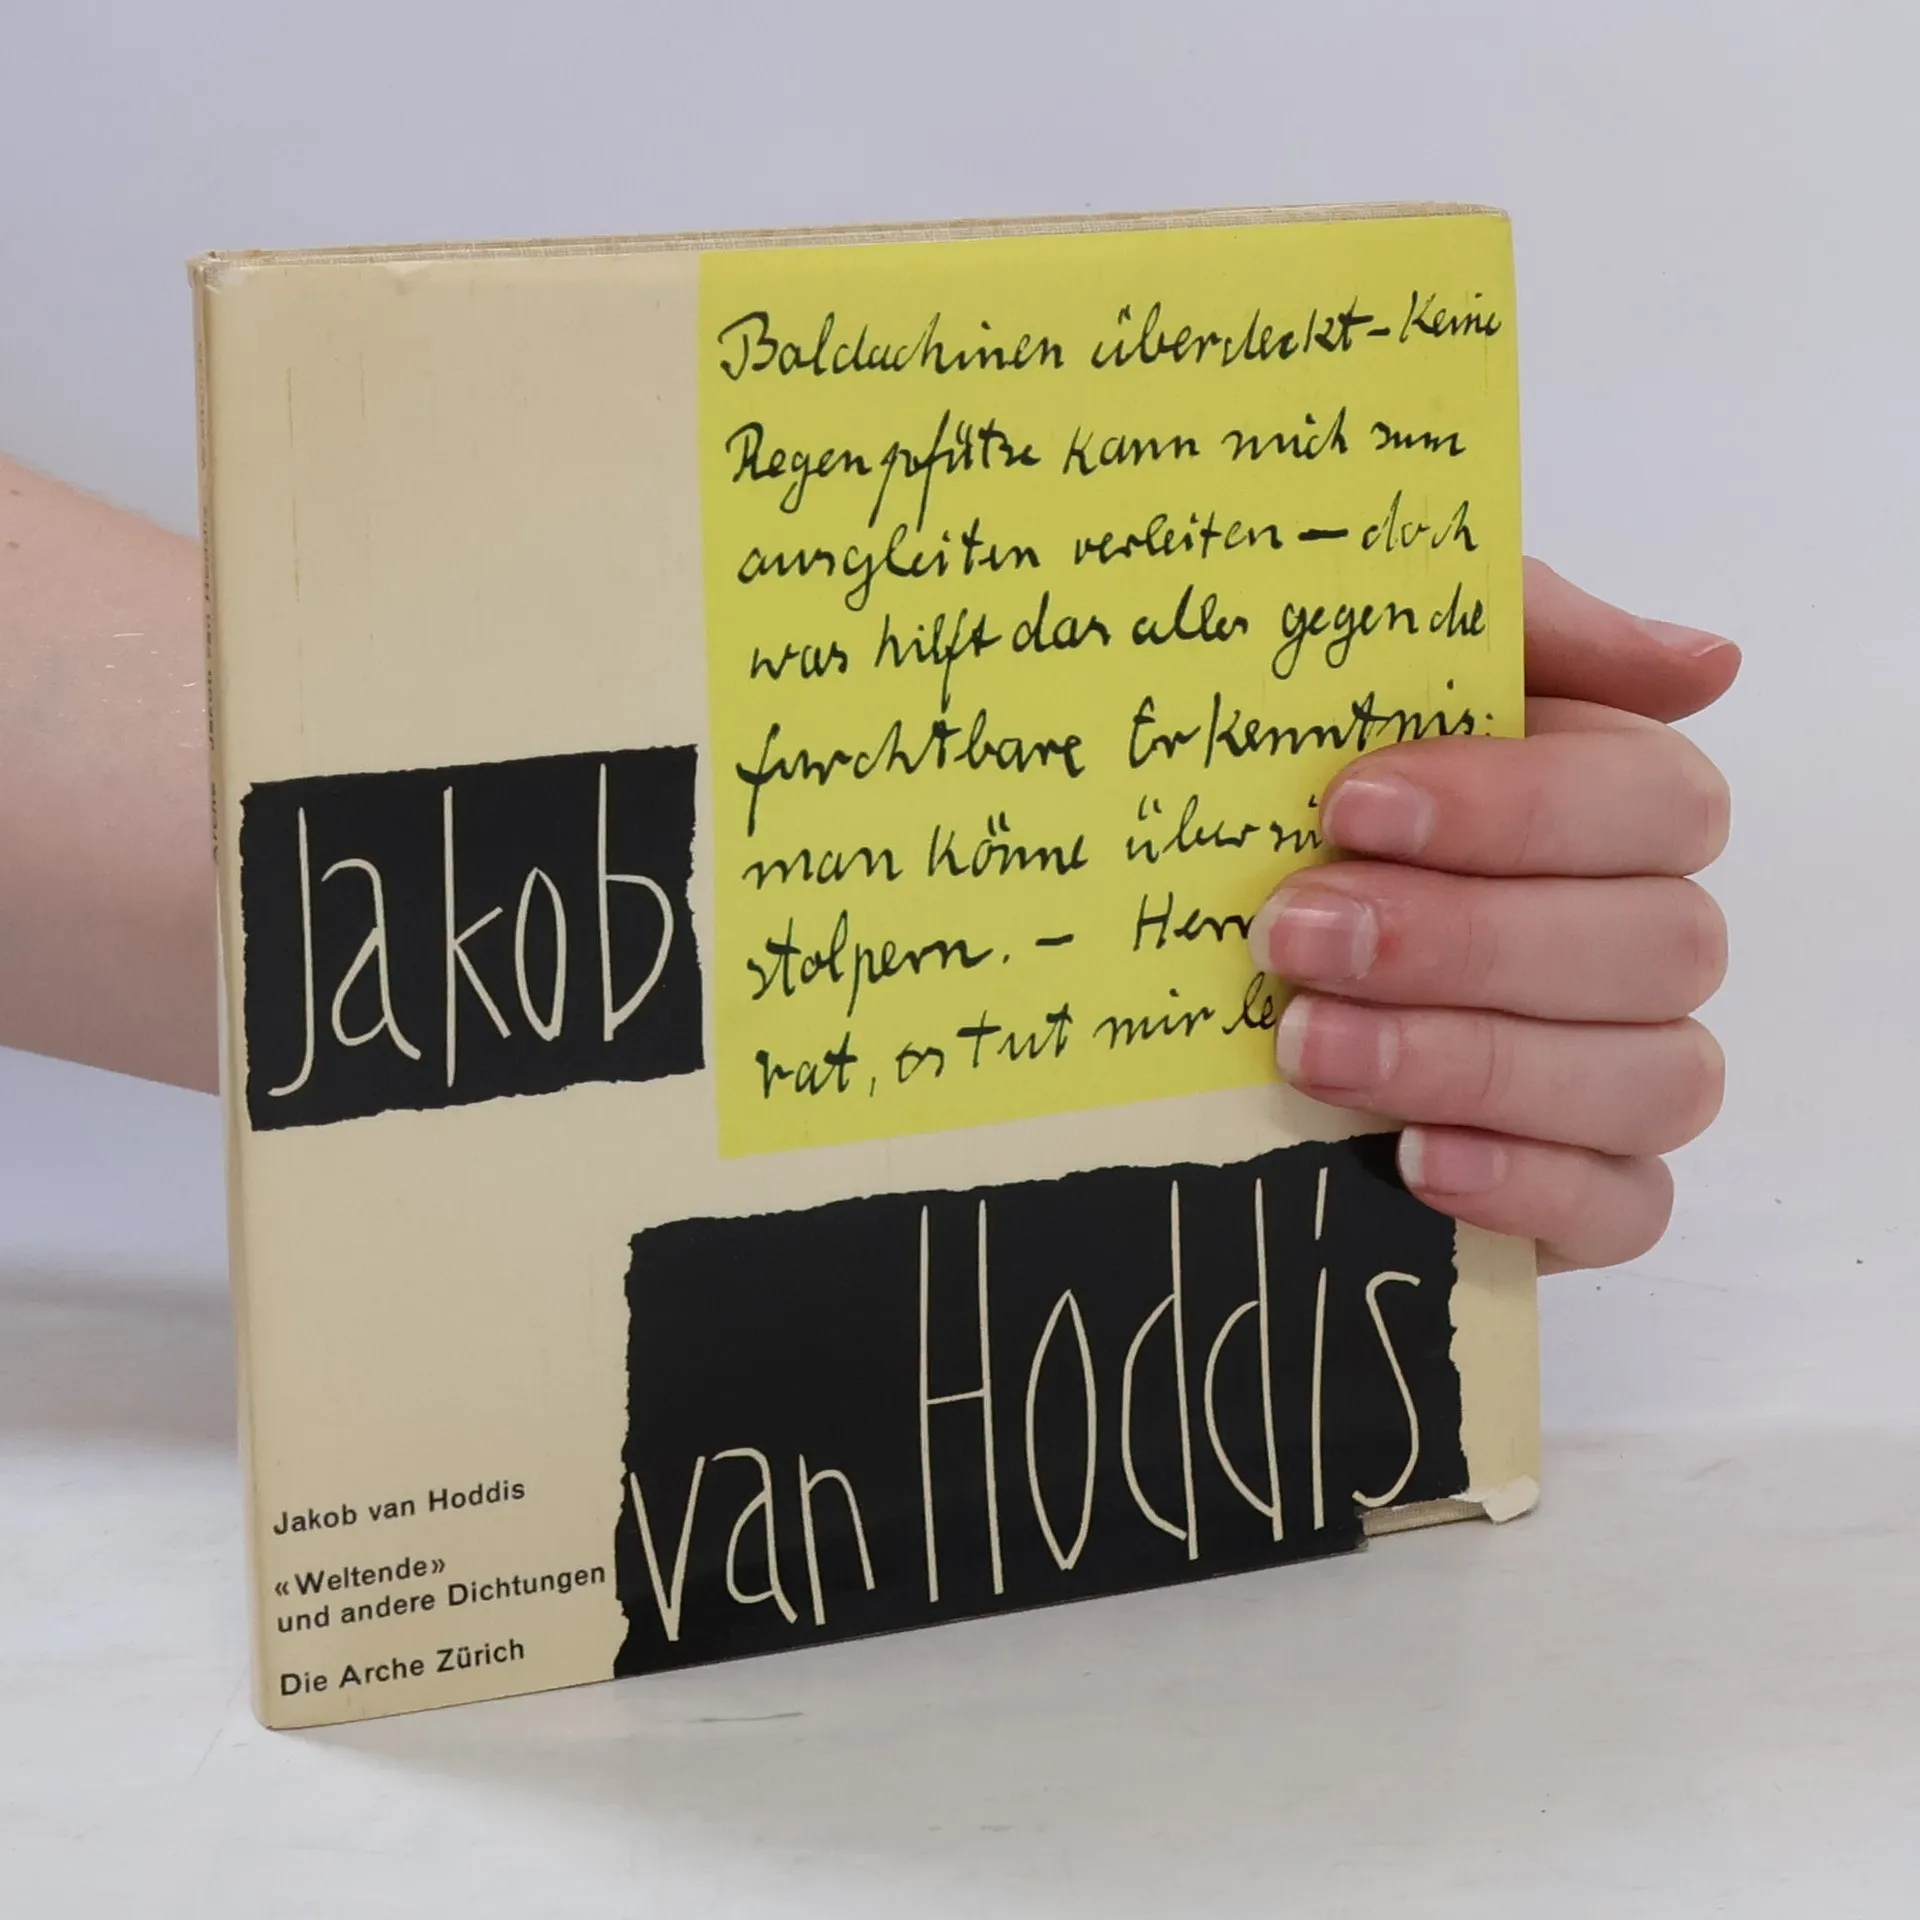 Baldachinen überdeckt – Keine
Regenpfütze kann mich zum
ausgleiten verleiten – doch
was hilft das alles gegen die
furchtbare Erkenntnis:
man könne über
stolpern. – Herr
rat, es tut mir le
Jakob
van Hoddis
Jakob van Hoddis
«Weltende»
und andere Dichtungen
Die Arche Zürich